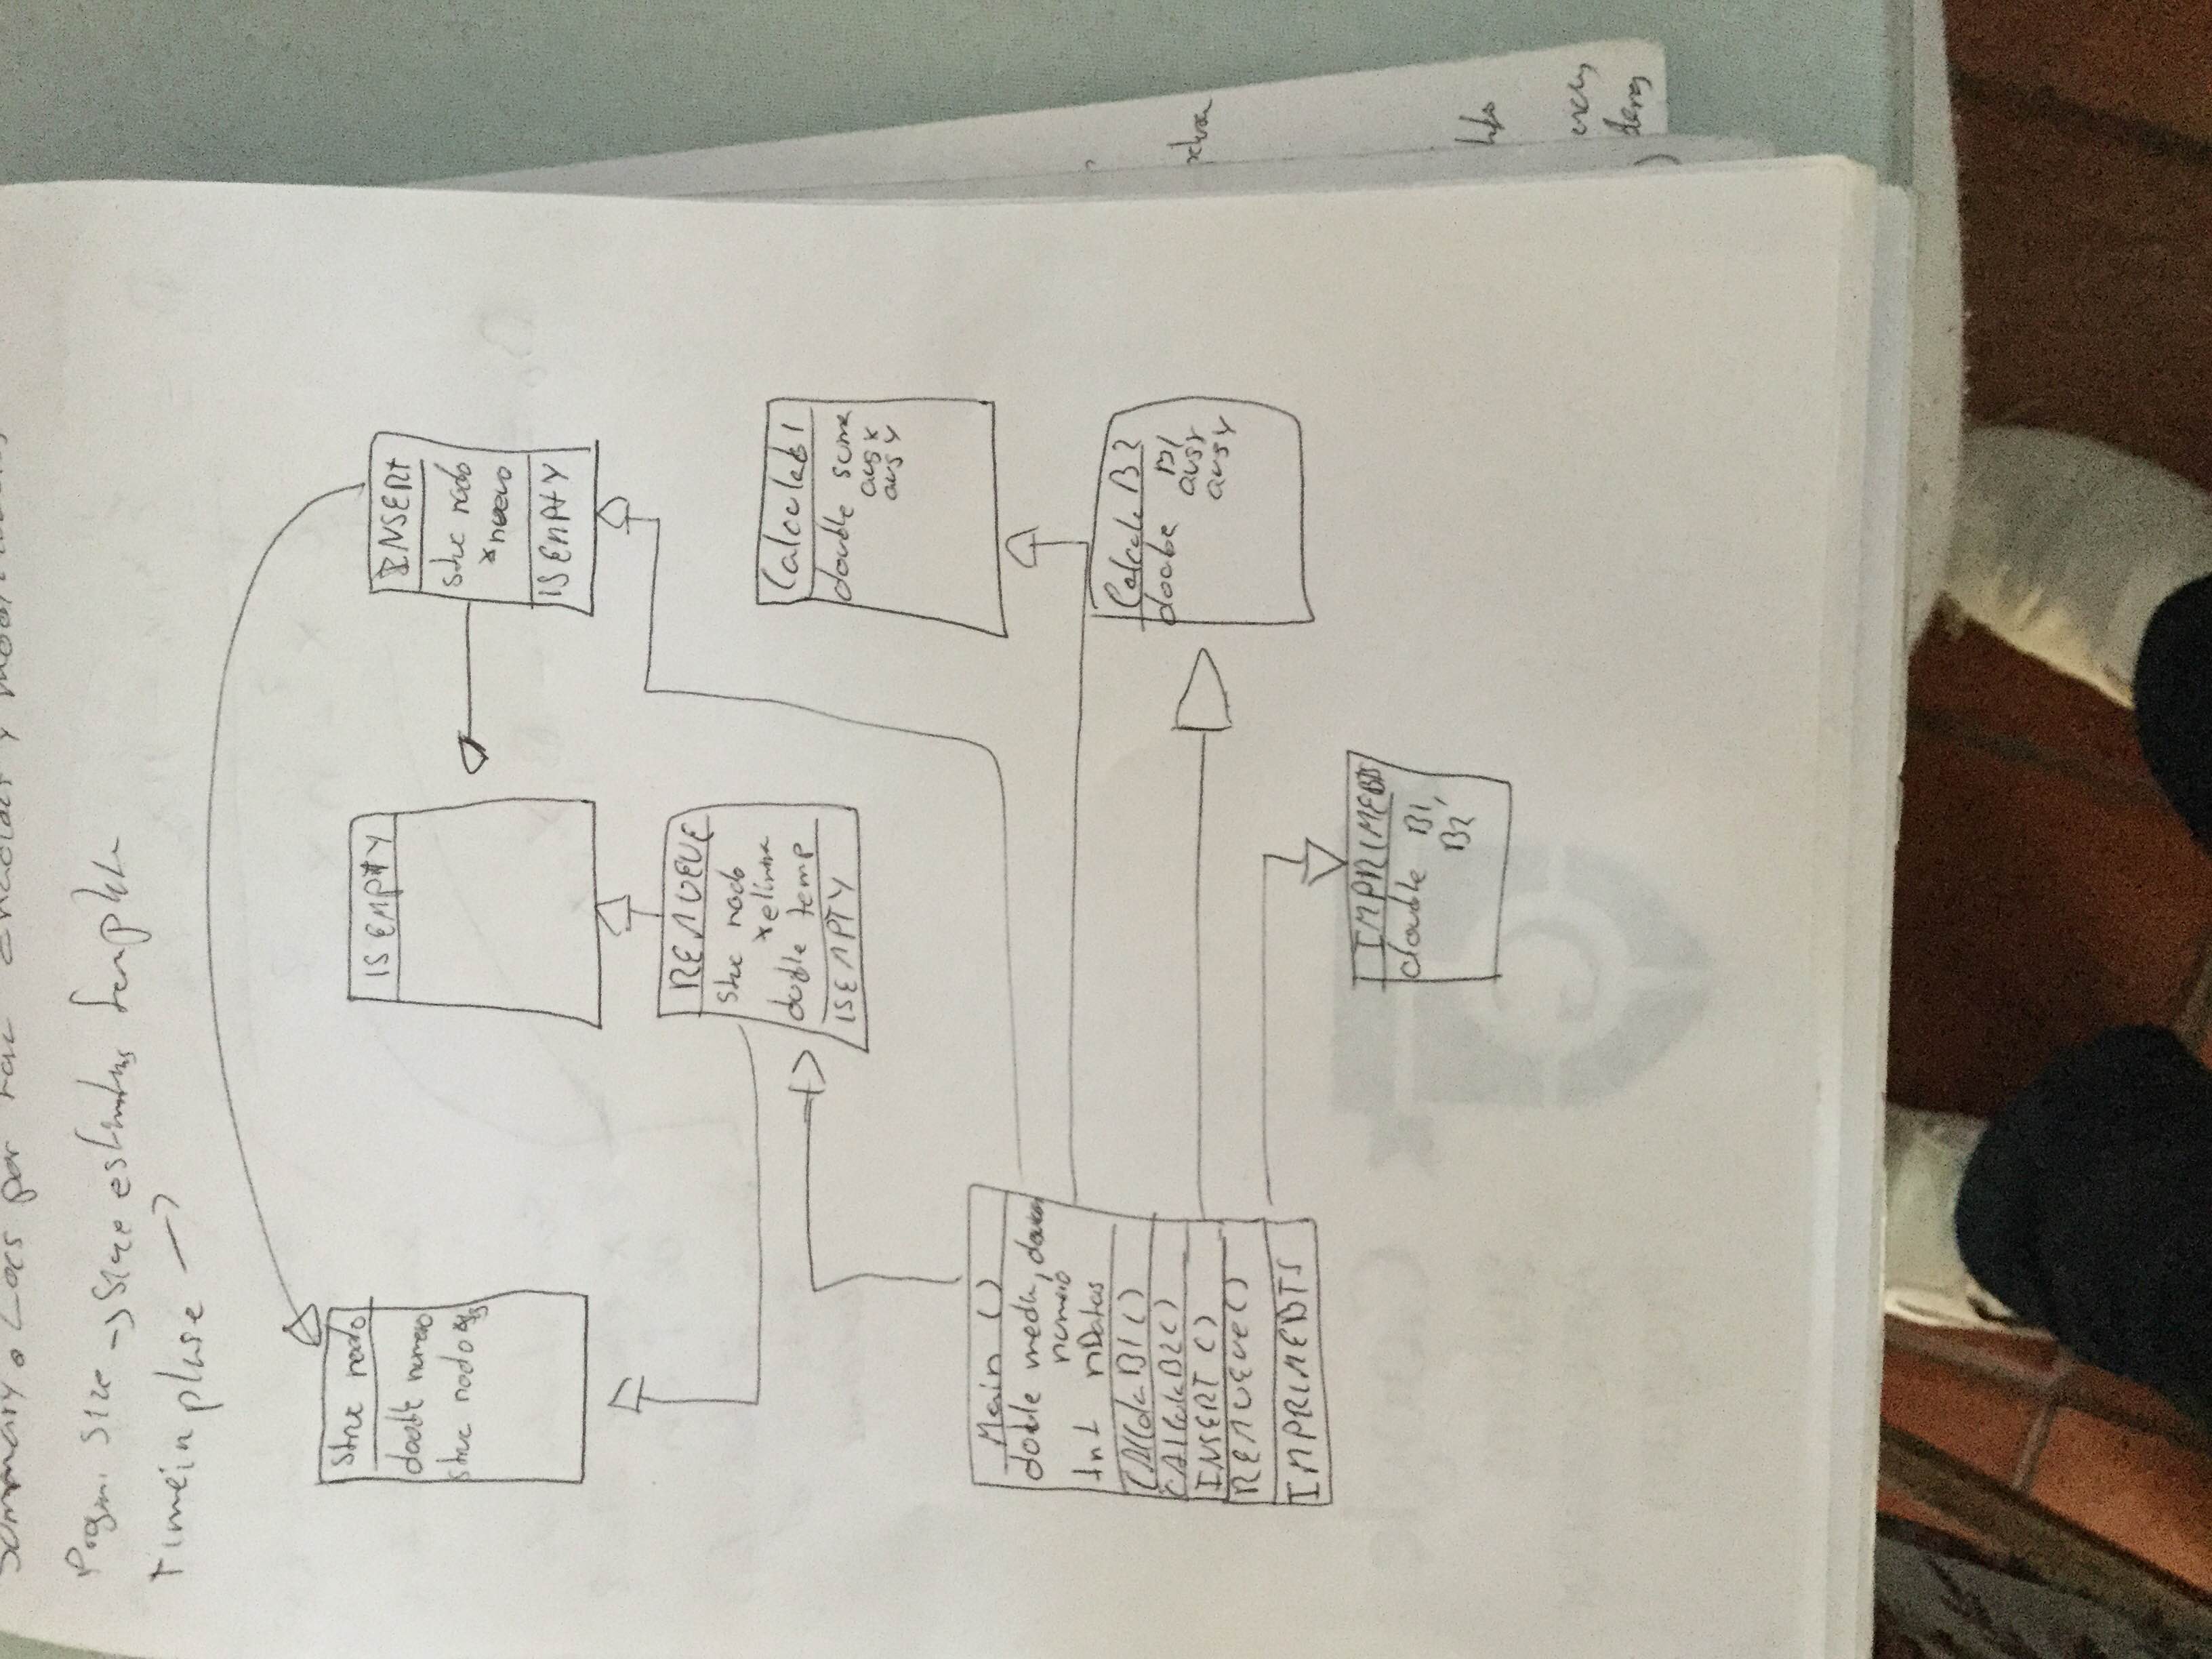 Summary. Locs por
Program Size -> Size estimating template
Time in phase ->
struc nodo
double numero
struc nodo
IS EMPTY
INSERT
struc nodo
*nuevo
IS EMPTY
REMUEVE
struc nodo
*elimina
double temp
ISEMPTY
CalculaB1
double suma
avgx
avgy
Main ()
double media,
numero
int nDatos
CALCulaB1()
CALCulaB2()
INSERT ()
REMUEVE()
IMPRIMEBTS
Calcula B2
double B1
avgx
avgy
IMPRIMEBTS
double B1,
B2